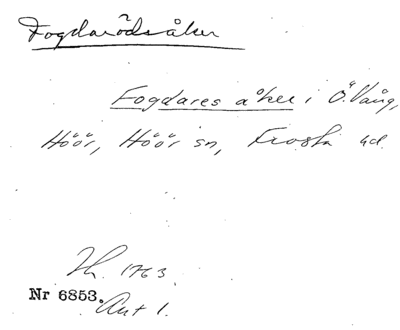 Fogdarödsåker
Fogdares åker i Ö. Vång,
Höör, Höör sn, Frosta hd.
Lh. 1763.
Nr 6853.
Akt 1.